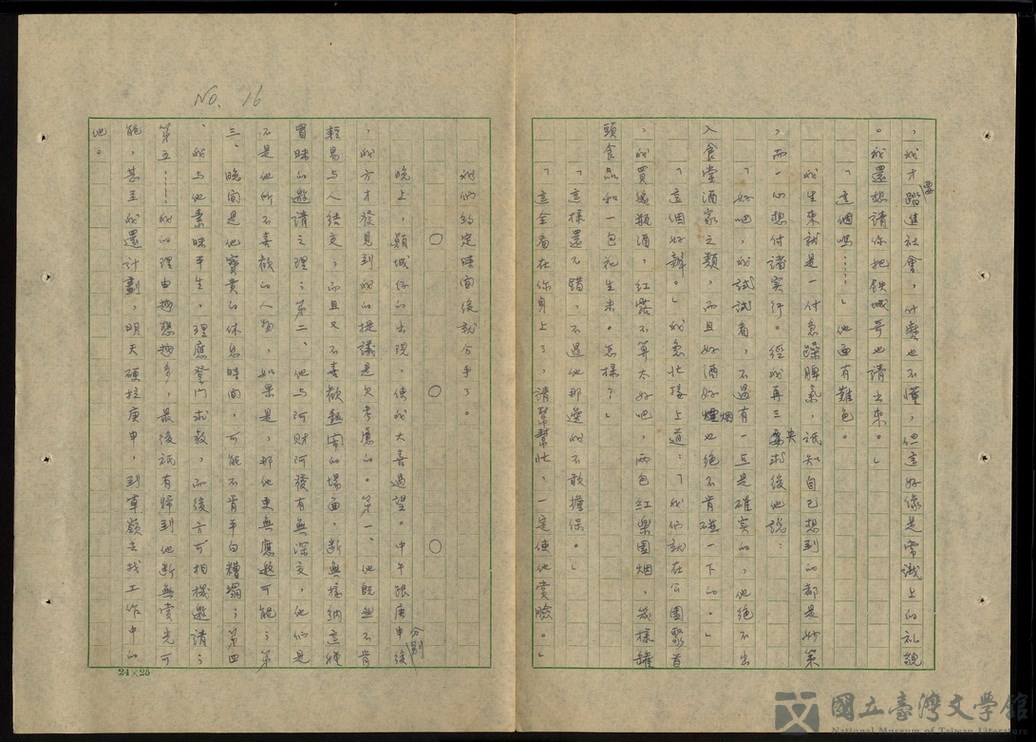 No. 16
，我才踏進社會，什麼也不懂，但這好像是常識上的礼貌
要
。我還想請你把鉄城哥也請出來。」
「這個嗎……」他面有難色。
我生來就是一付急躁脾氣，祇知自己想到的都是妙策
，而一心想付諸實行。經我再三要求後他說：
央
「好吧，我試試看，不過有一点是確实的，他絕不出
入食堂酒家之類，而且好酒好煙也絕不肯碰一下的。」
烟
「這個好辦。」我急忙接上道：「我們就在公園聚首
，我買幾瓶酒，紅露不算太好吧，兩包紅樂園烟，幾樣罐
頭食品和一包花生米。怎樣？」
「這樣還不錯，不過他那邊我不敢擔保。」
「這全看在你身上了，請幫幫忙，一定使他賞臉。」
我們約定時间後就分手了。
○　○　○
晚上，顏城仔的出現，使我大喜過望。中午跟庚申後
分别
，我方才發見到我的提議是欠考慮的。第一、他既無不肯
輕易与人結交，而且又不喜歡熱闹的場面，断無接納這種
冒昧的邀請之理；第二、他与阿財阿發有無深交，他們是
不是他所不喜歡的人物，如果是，那他更無應邀可能；第
三、晚间是他寶貴的休息時间，可能不肯平白糟塌；第四
、我与他素昧平生，理應登门求教，而後方可相機邀請；
第五……我的理由越想越多，最後祇有歸到他断無賞光可
能，甚至我還計劃，明天硬拉庚申，到草嶺去找工作中的
他。
24×25
國立臺灣文學館
National Museum of Taiwan Literature